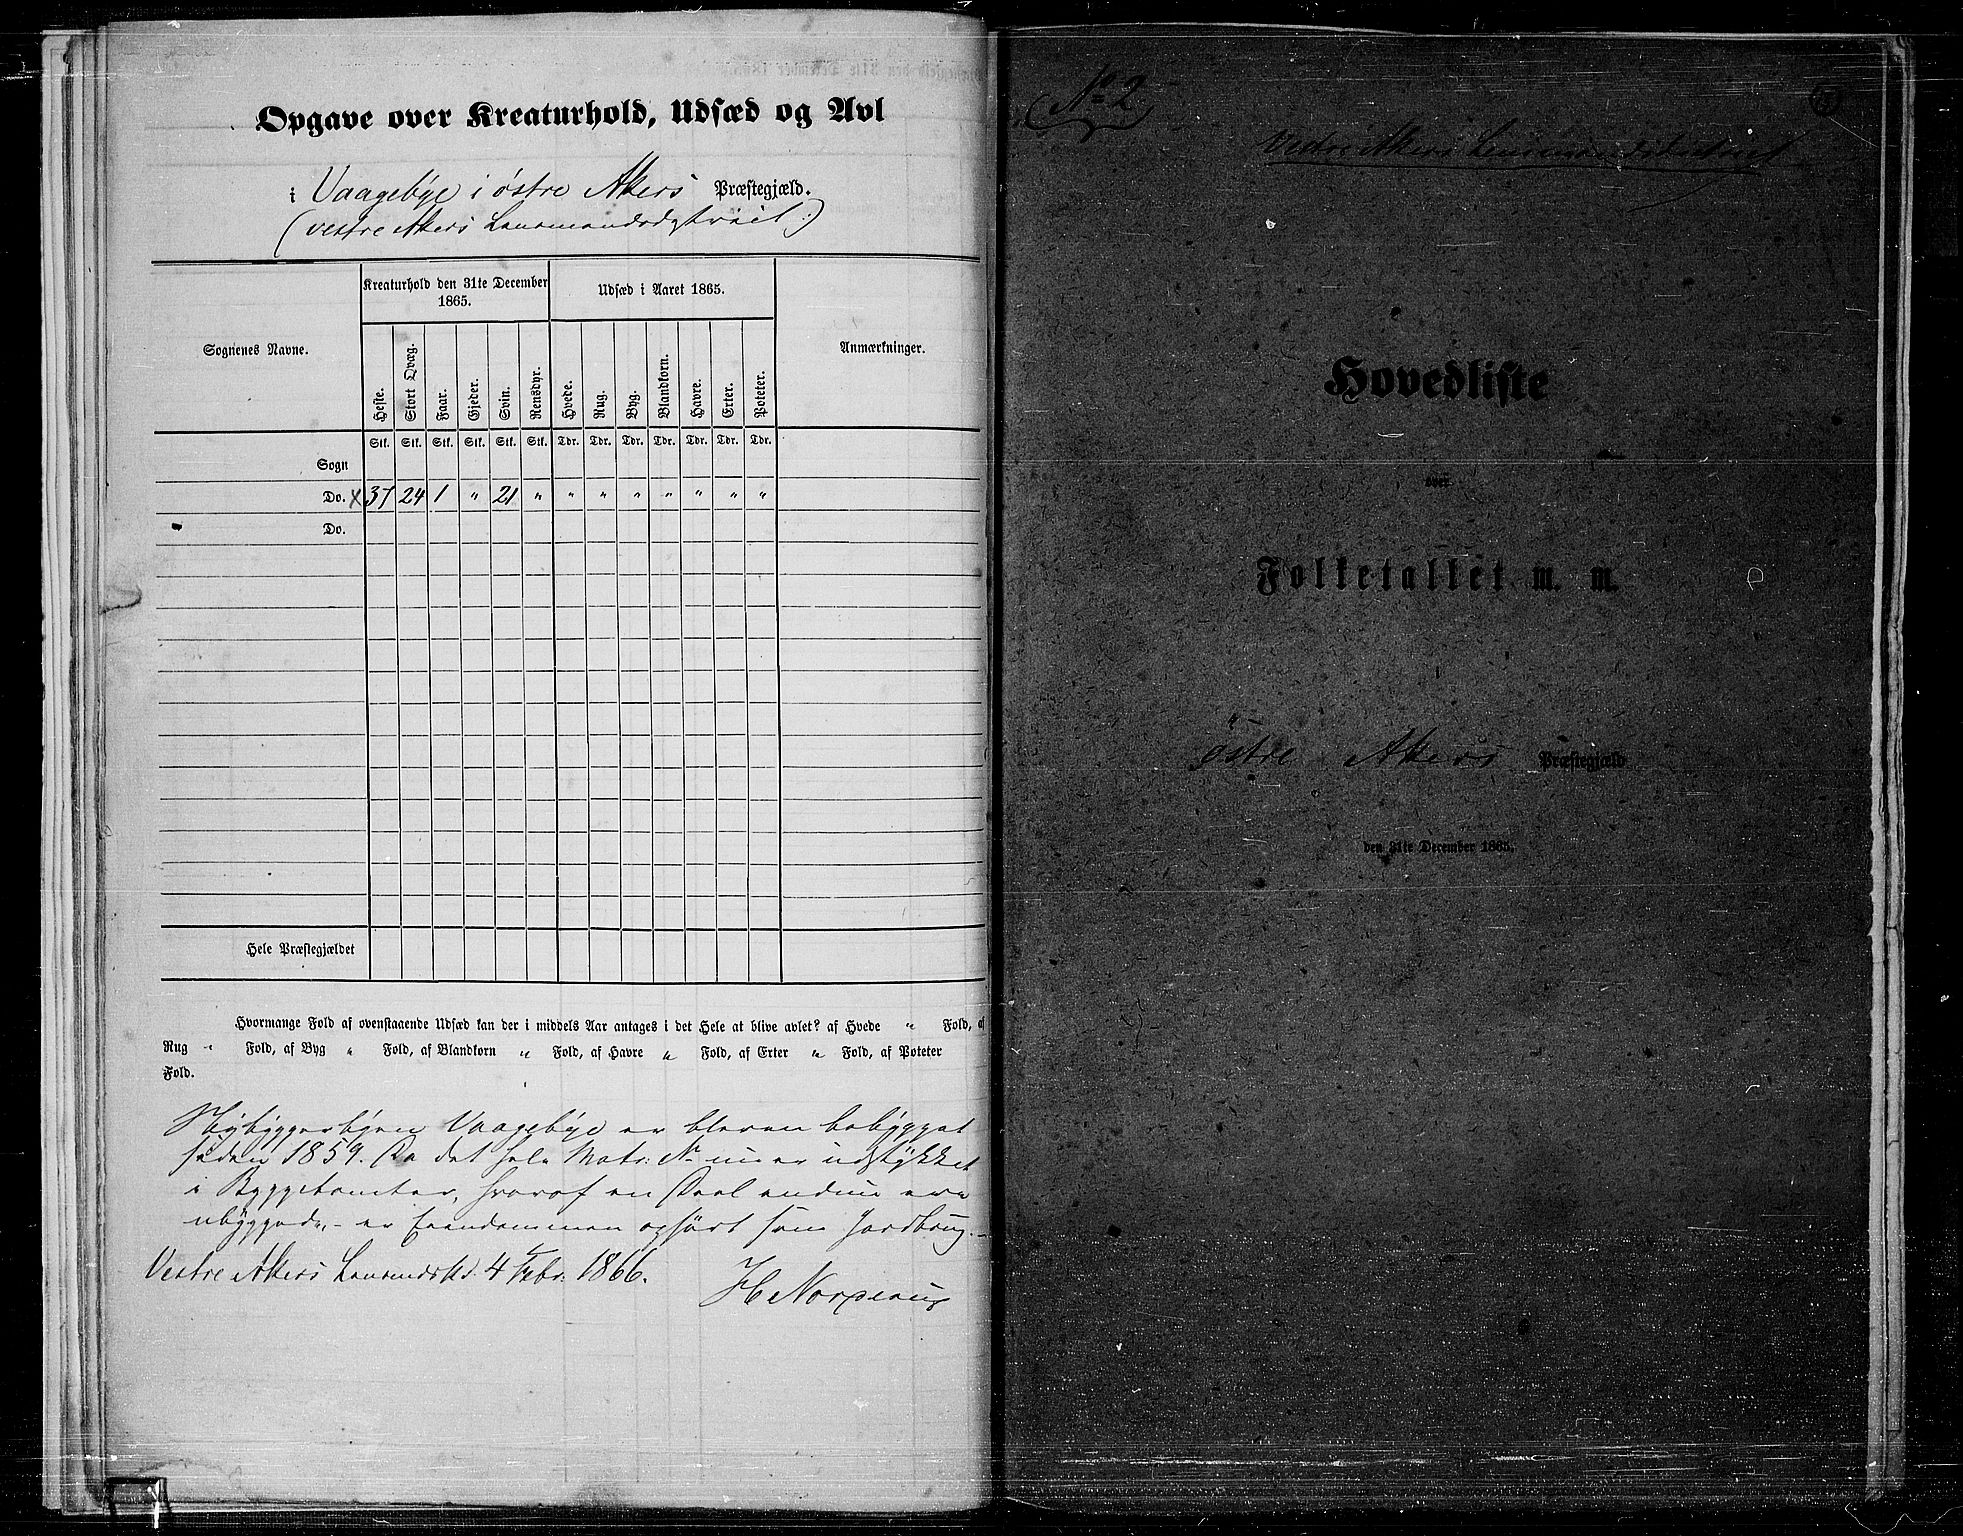 Opgave over Kreaturhold, Udsæd og Avl
i Vaagebye i østre Akers Præstegjæld.
(vestre Akers Lensmandsdistrict:)
Kreaturhold den 31te December 1865.
Udsæd i Aaret 1865.
Sognenes Navne.
Heste. Stort Qvæg. Faar. Gjeder. Svin. Rensdyr. Hvede. Rug. Byg. Blandkorn. Havre. Erter. Poteter.
Anmærkninger.
Stk. Stk. Stk. Stk. Stk. Stk. Tdr. Tdr. Tdr. Tdr. Tdr. Tdr. Tdr.
Sogn
Do. x 37 24 1 " 21 " " " " " " " "
Do.
Hele Præstegjældet
Hvormange Fold af ovenstaaende Udsæd kan der i middels Aar antages i det Hele at blive avlet? af Hvede " Fold, af
Rug " Fold, af Byg " Fold, af Blandkorn " Fold, af Havre " Fold, af Erter " Fold, af Poteter
Fold.
Vaagebye er bleven bebygget
siden 1859. Da det hele Matr: No nu er udstykket
i Byggetomter, hvoraf en Deel endnu ere
ubyggede, - er Eiendommen opført som Jordbrug. -
Vestre Akers Lensmdskd. 4 Febr. 1866.
No 2
Vestre Akers Lensmandsdistrict
Hovedliste
over
Folketallet m. m.
i
østre Akers Præstegjæld
den 31te December 1865.